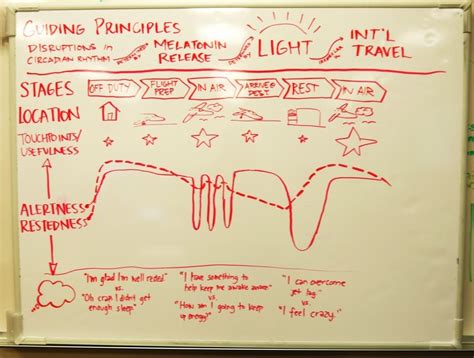 GUIDING PRINCIPLES
DISRUPTIONS in CIRCADIAN RHYTHM
MELATONIN RELEASE
LIGHT
INT'L TRAVEL
STAGES
OFF DUTY
FLIGHT PREP
IN AIR
ARRIVE @ DEST
REST
IN AIR
LOCATION
TOUCHPOINTS/
USEFULNESS
ALERTNESS
RESTEDNESS
"I'm glad I'm well rested"
vs.
"Oh crap I didn't get
enough sleep"
"I have something to
help keep me awake
vs.
"How am I going to keep
up energy"
"I can overcome
jet lag"
vs.
"I feel crazy."